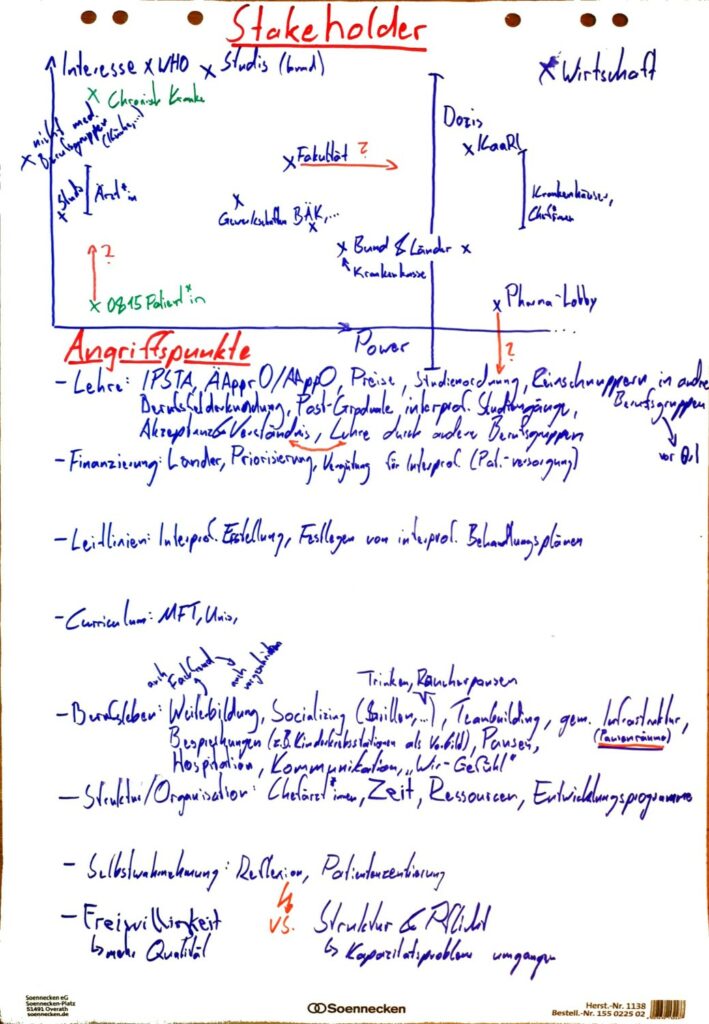 Stakeholder
Interesse x WHO x Studis (bund)
x Wirtschaft
x Chronisch Kranke
x nicht med.
Berufsgruppen
(Küche,...)
Dozis
x KaaRl
x Fakultät ?
Studis
x
Ärzt*in
x
Gewerkschaften BÄK,...
x
Krankenhäuser,
Chef*innen
x Bund & Länder x
Krankenkasse
?
x 0815 Patient*in
x Pharma-Lobby
?
Power
...
Angriffspunkte
- Lehre: IPSTA, ÄApprO/AAppO, Preise, Studienordnung, Reinschnuppern in andre
Berufsfelderkundung, Post-Graduale interprof. Studiengänge, Berufsgruppen
Akzeptanz & Verständnis, Lehre durch andere Berufsgruppen
vor Ort
- Finanzierung: Länder, Priorisierung, Vergütung für Interprof. (Pall.-versorgung)
- Leitlinien: Interprof. Erstellung, Festlegen von interprof. Behandlungsplänen
- Curriculum: MFT, Unis,
auch
Trinken, Raucherpausen
- Berufsleben: Weiterbildung, Socializing (Grillen,...), Teambuilding, gem. Infrastruktur,
(Pausenräume)
Besprechungen (z.B. Kinderkrebsstationen als Vorbild), Pausen,
Hospitation, Kommunikation, "Wir-Gefühl"
- Struktur/Organisation: Chefärzt*innen, Zeit, Ressourcen, Entwicklungsprogramme
- Selbstwahrnehmung: Reflexion, Patientenzentrierung
- Freiwilligkeit vs. Struktur & Pflicht
↳ mehr Qualität ↳ Kapazitätsprobleme umgangen
Soennecken eG
Soennecken-Platz
51491 Overath
soennecken.de
Soennecken
Herst.-Nr. 1138
Bestell.-Nr. 155 0225 02